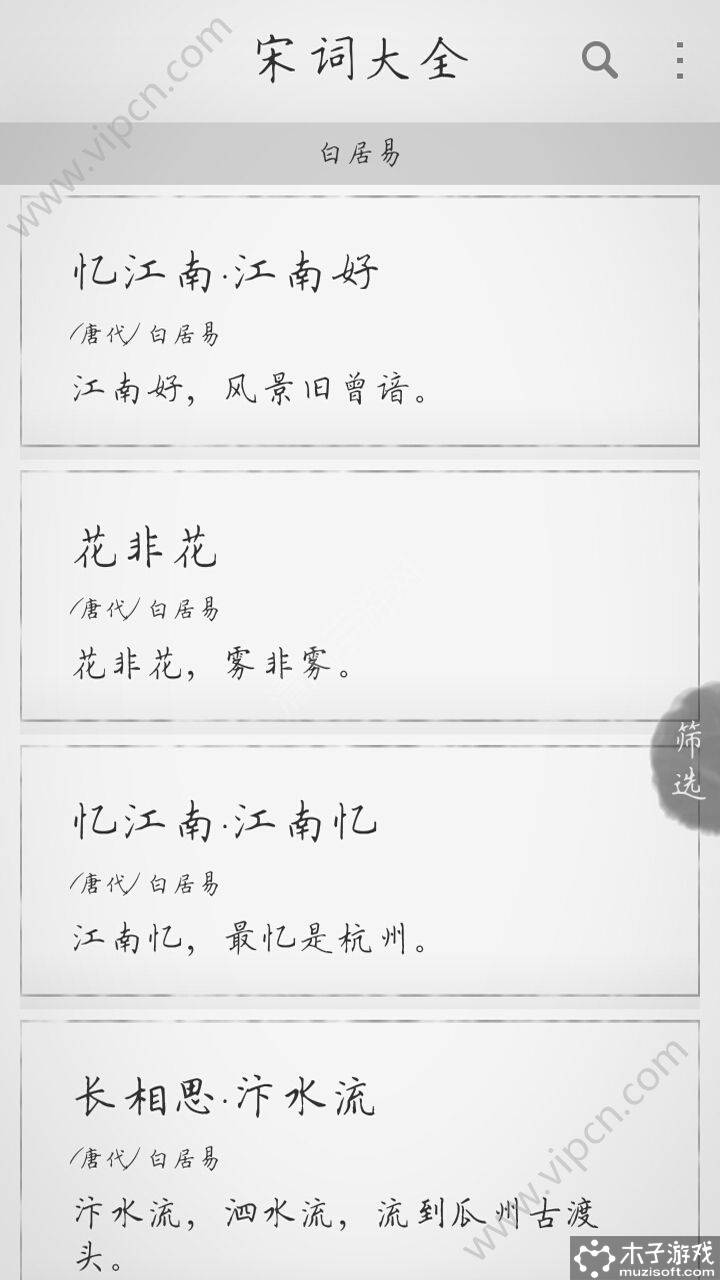 宋词大全
www.vipcn.com
白居易
忆江南·江南好
/唐代/白居易
江南好，风景旧曾谙。
花非花
/唐代/白居易
花非花，雾非雾。
筛选
忆江南·江南忆
/唐代/白居易
江南忆，最忆是杭州。
长相思·汴水流
/唐代/白居易
汴水流，泗水流，流到瓜州古渡
头。
www.vipcn.com
木子游戏
muzisoft.com